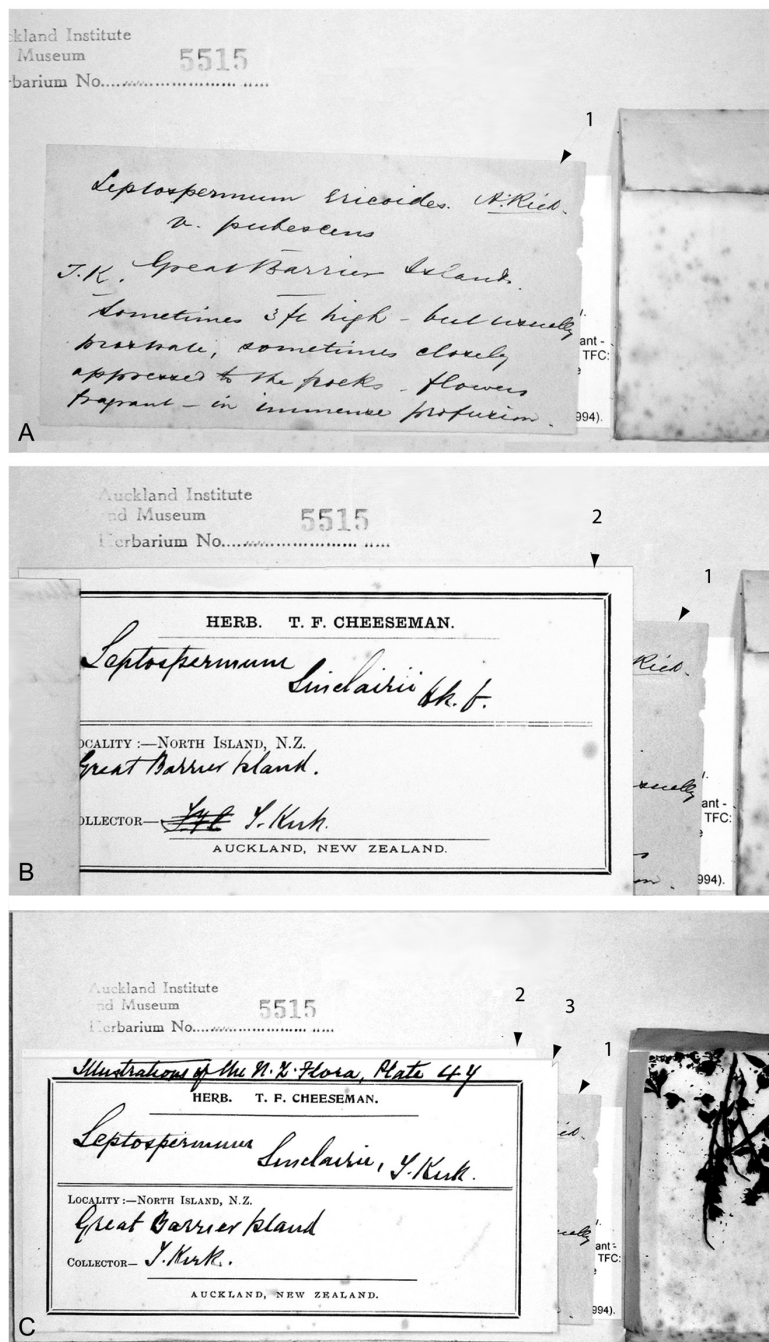 ckland Institute
Museum
rbarium No.
5515
1
Leptospermum ericoides. A. Rich.
v. pubescens
T.K. Great Barrier Island.
Sometimes 3 ft high - but usually
prostrate, sometimes closely
appressed to the rocks - flowers
fragrant - in immense profusion.
ant -
TFC:
994).
A
Auckland Institute
nd Museum
Herbarium No.
5515
2
1
HERB. T. F. CHEESEMAN.
Leptospermum
Sinclairii Hk. f.
Rich.
OCALITY :—NORTH ISLAND, N.Z.
Great Barrier Island.
sually
OLLECTOR— T. Kirk.
AUCKLAND, NEW ZEALAND.
ant -
TFC:
994).
B
Auckland Institute
nd Museum
Herbarium No.
5515
2
3
1
Illustrations of the N.Z. Flora, Plate 44
HERB. T. F. CHEESEMAN.
Leptospermum
Sinclairii, T. Kirk.
LOCALITY :—NORTH ISLAND, N.Z.
Great Barrier Island
COLLECTOR— T. Kirk.
AUCKLAND, NEW ZEALAND.
ant -
TFC:
994).
C